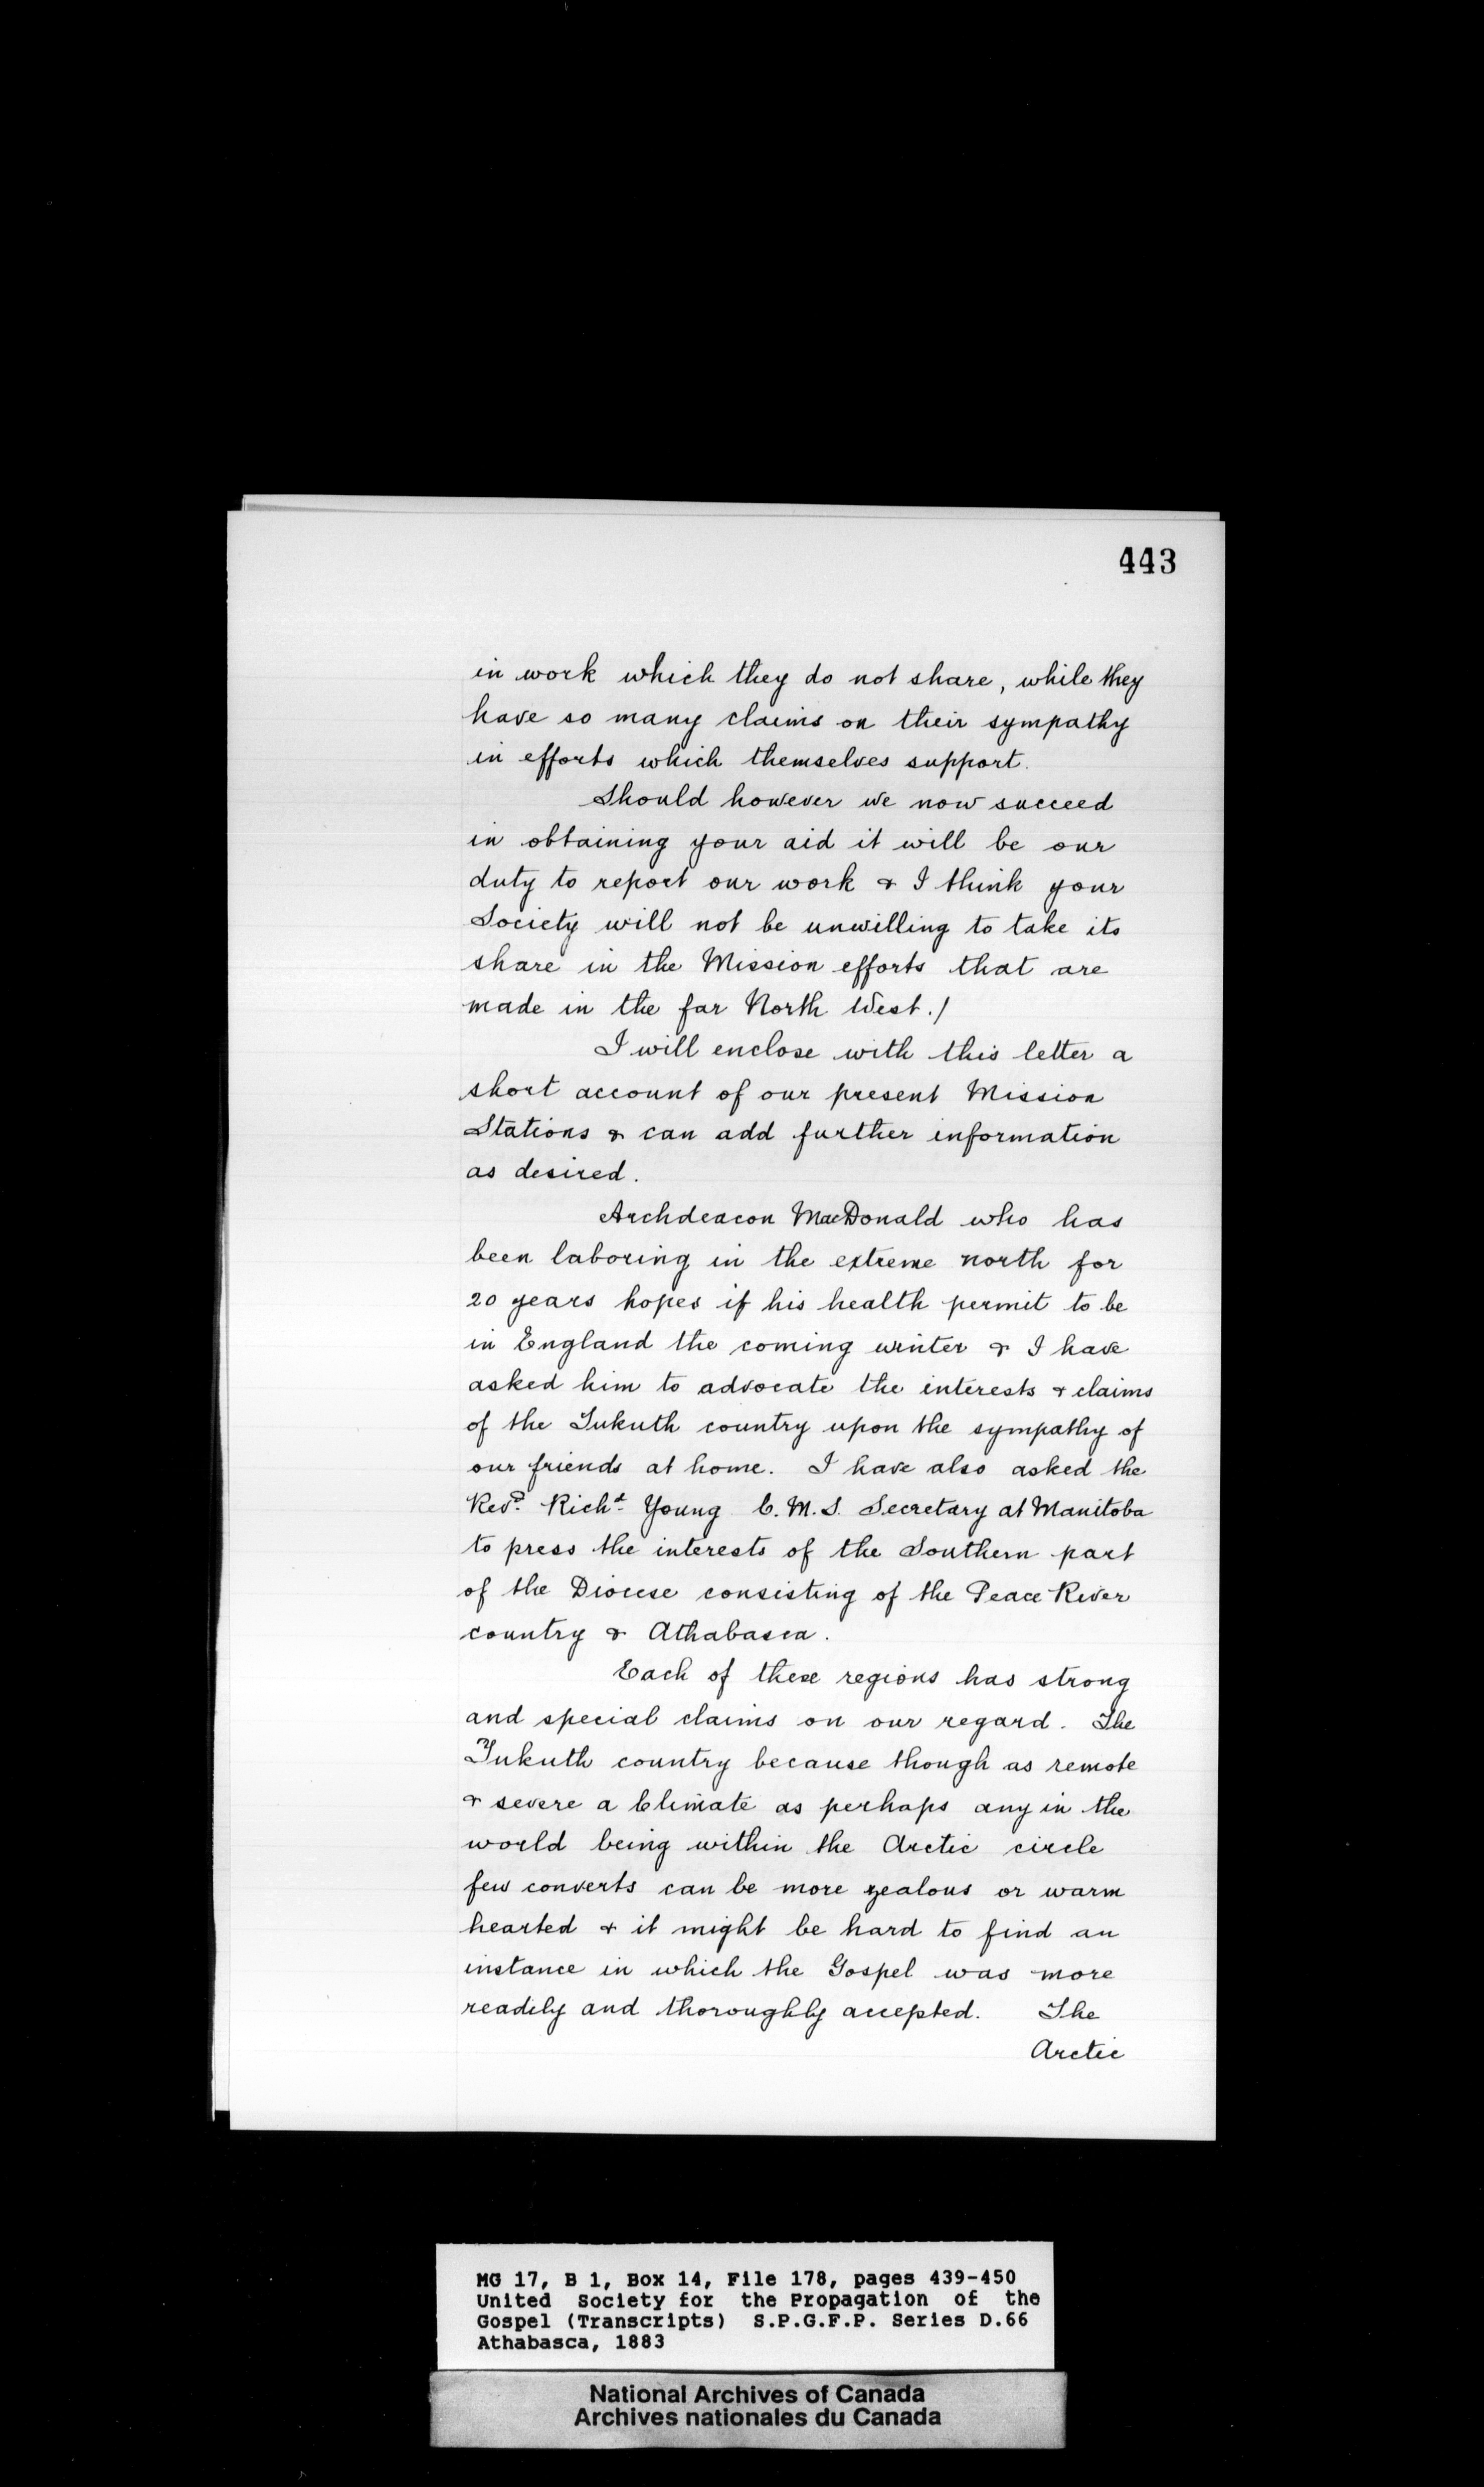 443
in work which they do not share, while they
have so many claims on their sympathy
in efforts which themselves support.
Should however we now succeed
in obtaining your aid it will be our
duty to report our work & I think your
Society will not be unwilling to take its
share in the Mission efforts that are
made in the far North West./
I will enclose with this letter a
short account of our present Mission
Stations & can add further information
as desired.
Archdeacon MacDonald who has
been laboring in the extreme north for
20 years hopes if his health permit to be
in England the coming winter & I have
asked him to advocate the interests & claims
of the Tukuth country upon the sympathy of
our friends at home. I have also asked the
Revd. Richd. Young C.M.S. Secretary at Manitoba
to press the interests of the Southern part
of the Diocese consisting of the Peace River
country & Athabasca.
Each of these regions has strong
and special claims on our regard. The
Tukuth country because though as remote
& severe a Climate as perhaps any in the
world being within the Arctic circle
few converts can be more zealous or warm
hearted & it might be hard to find an
instance in which the Gospel was more
readily and thoroughly accepted. The
Arctic
MG 17, B 1, Box 14, File 178, pages 439-450
United Society for the Propagation of the
Gospel (Transcripts) S.P.G.F.P. Series D.66
Athabasca, 1883
National Archives of Canada
Archives nationales du Canada